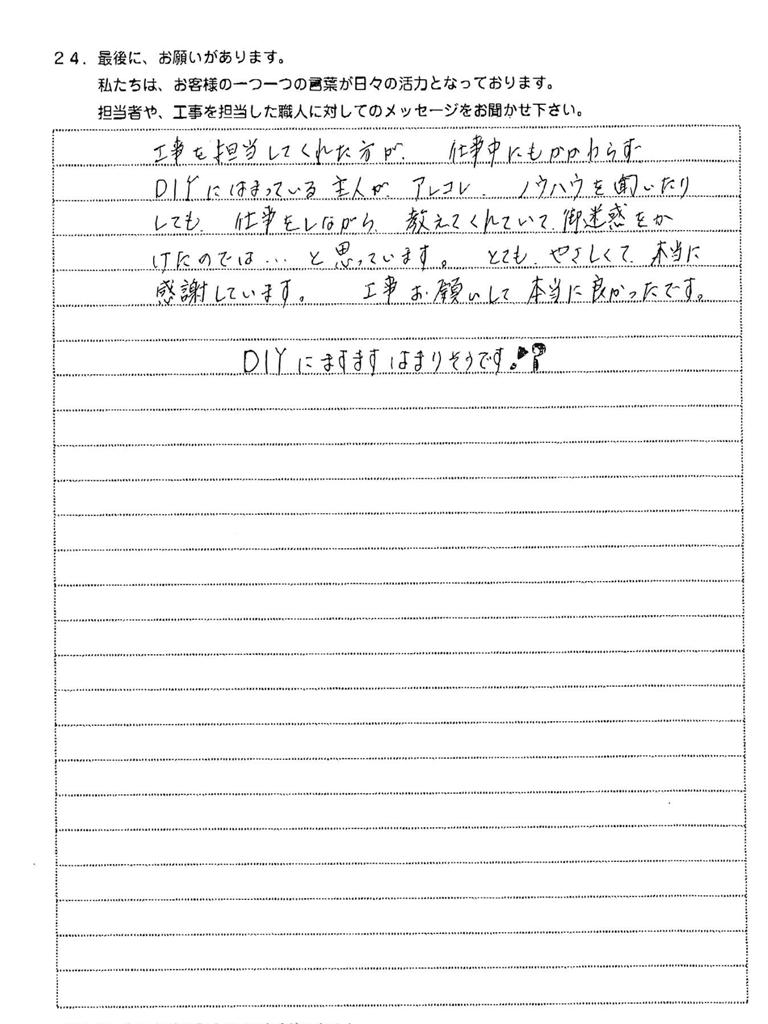 24．最後に、お願いがあります。
私たちは、お客様の一つ一つの言葉が日々の活力となっております。
担当者や、工事を担当した職人に対してのメッセージをお聞かせ下さい。
工事を担当してくれた方が、仕事中にもかかわらず
DIYにはまっている主人が、アレコレ、ノウハウを聞いたり
しても、仕事をしながら、教えてくれていて、御迷惑をか
けたのでは…と思っています。とても、やさしくて、本当に
感謝しています。工事お願いして本当に良かったです。
DIYにますますはまりそうです。